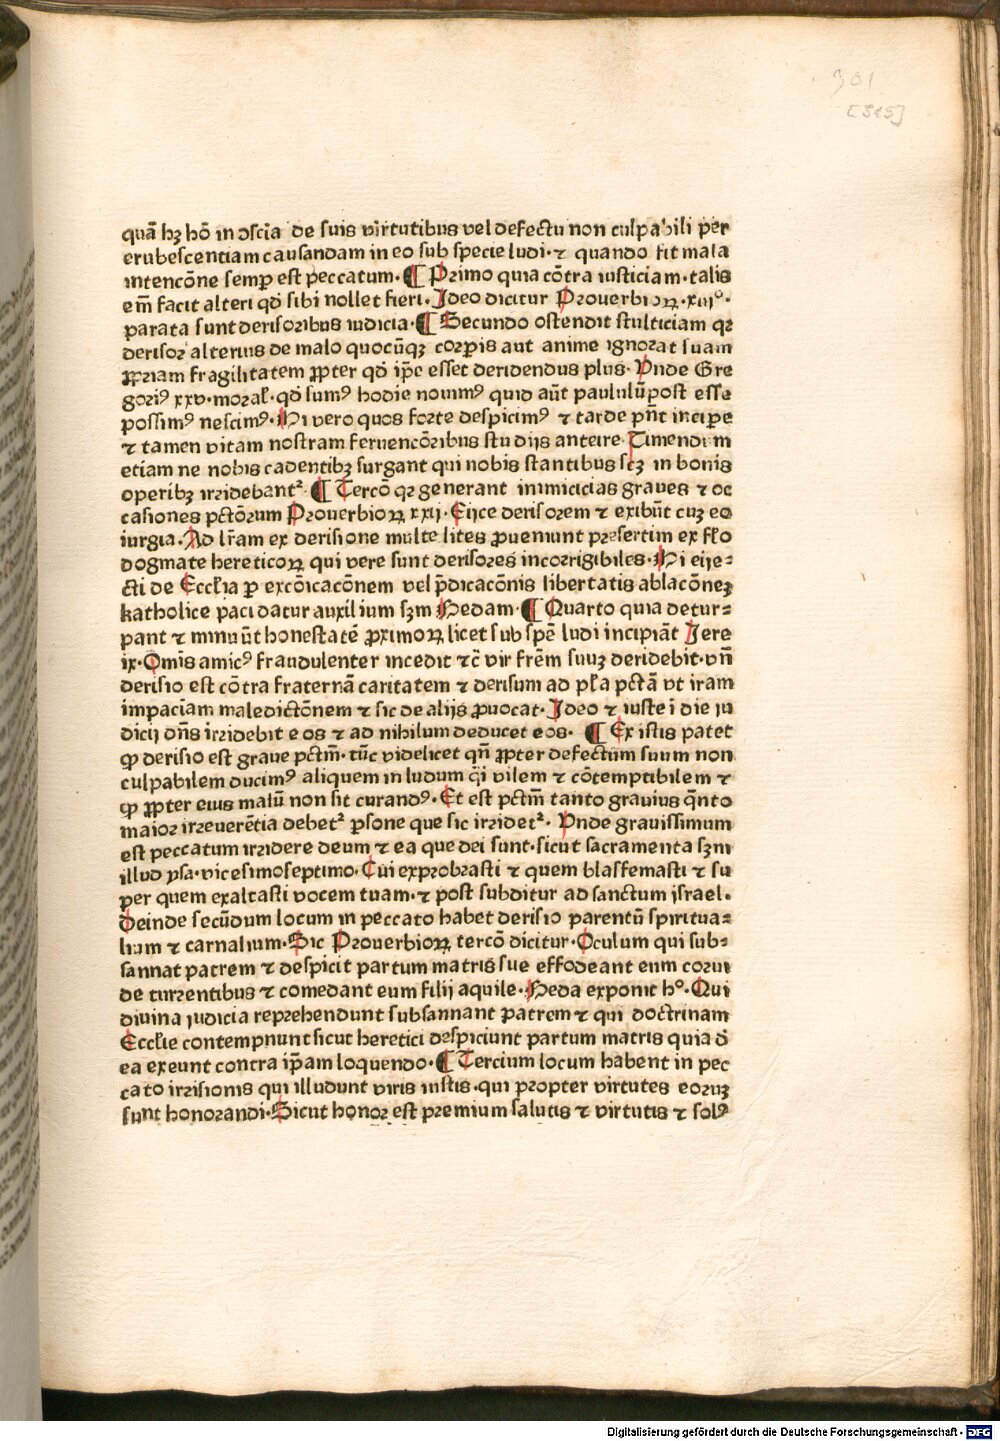 301
[315]
quā hꝫ hō in ↄscīa de suis virtutibus vel defectu non culpabili per
erubescentiam causandam in eo sub specie ludi·⁊ quando fit mala
intencōne semꝑ est peccatum·¶ Primo quia cōtra iusticiam·talis
em̄ facit alteri qd̄ sibi nollet fieri·Ideo dicitur Prouerbioꝝ·xiijº·
parata sunt derisoribus iudicia·¶ Secundo ostendit stulticiam qꝛ
derisor alterius de malo quocūqꝫ corꝑis aut anime ignorat suam
ꝓpriam fragilitatem ꝓpter qd̄ ip̄e esset deridendus plus·Vnde Gre
goriꝰ xxv·moral̄·qd̄ sumꝰ hodie nouimꝰ quid aūt paululūpost esse
possimꝰ nescimꝰ·Hi vero quos forte despicimꝰ ⁊ tarde pn̄t inciꝑe
⁊ tamen vitam nostram feruencōribus studijs anteire·Timendum
etiam ne nobis cadentibꝫ surgant qui nobis stantibus scꝫ in bonis
operibꝫ irridebantᷣ·¶ Tercō qꝛ generant inimicicias graues ⁊ oc
casiones pctōrum Prouerbioꝝ xxij·Eijce derisorem ⁊ exibūt cuꝫ eo
iurgia·Ad lr̄am ex derisione multe lites ꝓueniunt presertim ex fl̄o
dogmate hereticoꝝ qui vere sunt derisores incorrigibiles·Hi eije⸗
cti de Eccl̄ia ꝑ excōicacōnem vel p̄dicacōnis libertatis ablacōneꝫ
katholice paci datur auxilium sꝫm Bedam·¶ Quarto quia detur⸗
pant ⁊ minuūt honestatē ꝓximoꝝ licet sub spē ludi incipiāt Jere
ix·Omīs amicꝰ fraudulenter incedit ⁊c̄ vir frēm suuꝫ deridebit·vn̄
derisio est cōtra fraternā caritatem ⁊ derisum ad pl̄a pctā vt iram
impaciam maledictōnem ⁊ sic de alijs ꝓuocat·Ideo ⁊ iuste ī die iu
dicij dn̄s irridebit eos ⁊ ad nihilum deducet eos· ¶ Ex istis patet
ꝙ derisio est graue pctm̄·tūc videlicet qn̄ ꝓpter defectum suum non
culpabilem ducimꝰ aliquem in ludum q̄i vilem ⁊ cōtemptibilem ⁊
ꝙ ꝓpter eius malū non sit curandꝰ·Et est pctm̄ tanto grauius q̄nto
maior irreuerētia debetᷣ ꝑsone que sic irridetᷣ· Vnde grauissimum
est peccatum irridere deum ⁊ ea que dei sunt·sicut sacramenta sꝫm
illud ysa·vicesimoseptimo·Cui exprobrasti ⁊ quem blasfemasti ⁊ su
per quem exaltasti vocem tuam·⁊ post subditur ad sanctum israel·
Deinde secūdum locum in peccato habet derisio parentū spiritua⸗
lium ⁊ carnalium·Sic Prouerbioꝝ tercō dicitur·Oculum qui sub⸗
sannat patrem ⁊ despicit partum matris sue effodeant eum corui
de turrentibus ⁊ comedant eum filij aquile·Beda exponit hº·Qui
diuina iudicia reprehendunt subsannant patrem ⁊ qui doctrinam
Eccl̄ie contempnunt sicut heretici despiciunt partum matris quia d̄
ea exeunt contra ip̄am loquendo·¶ Tercium locum habent in pec
cato irrisionis qui illudunt viris iustis·qui propter virtutes eoruꝫ
sunt honorandi·Sicut honor est premium salutis ⁊ virtutis ⁊ solꝰ
Digitalisierung gefördert durch die Deutsche Forschungsgemeinschaft - DFG